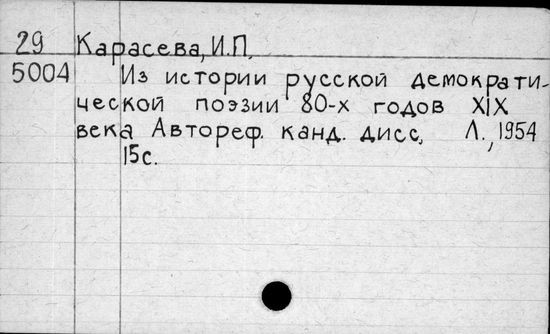 29 Карасева, И.П.
5004 Из истории русской демократи-
ческой поэзии 80-х годов XIX
века Автореф. канд. дисс., Л., 1954
15с.